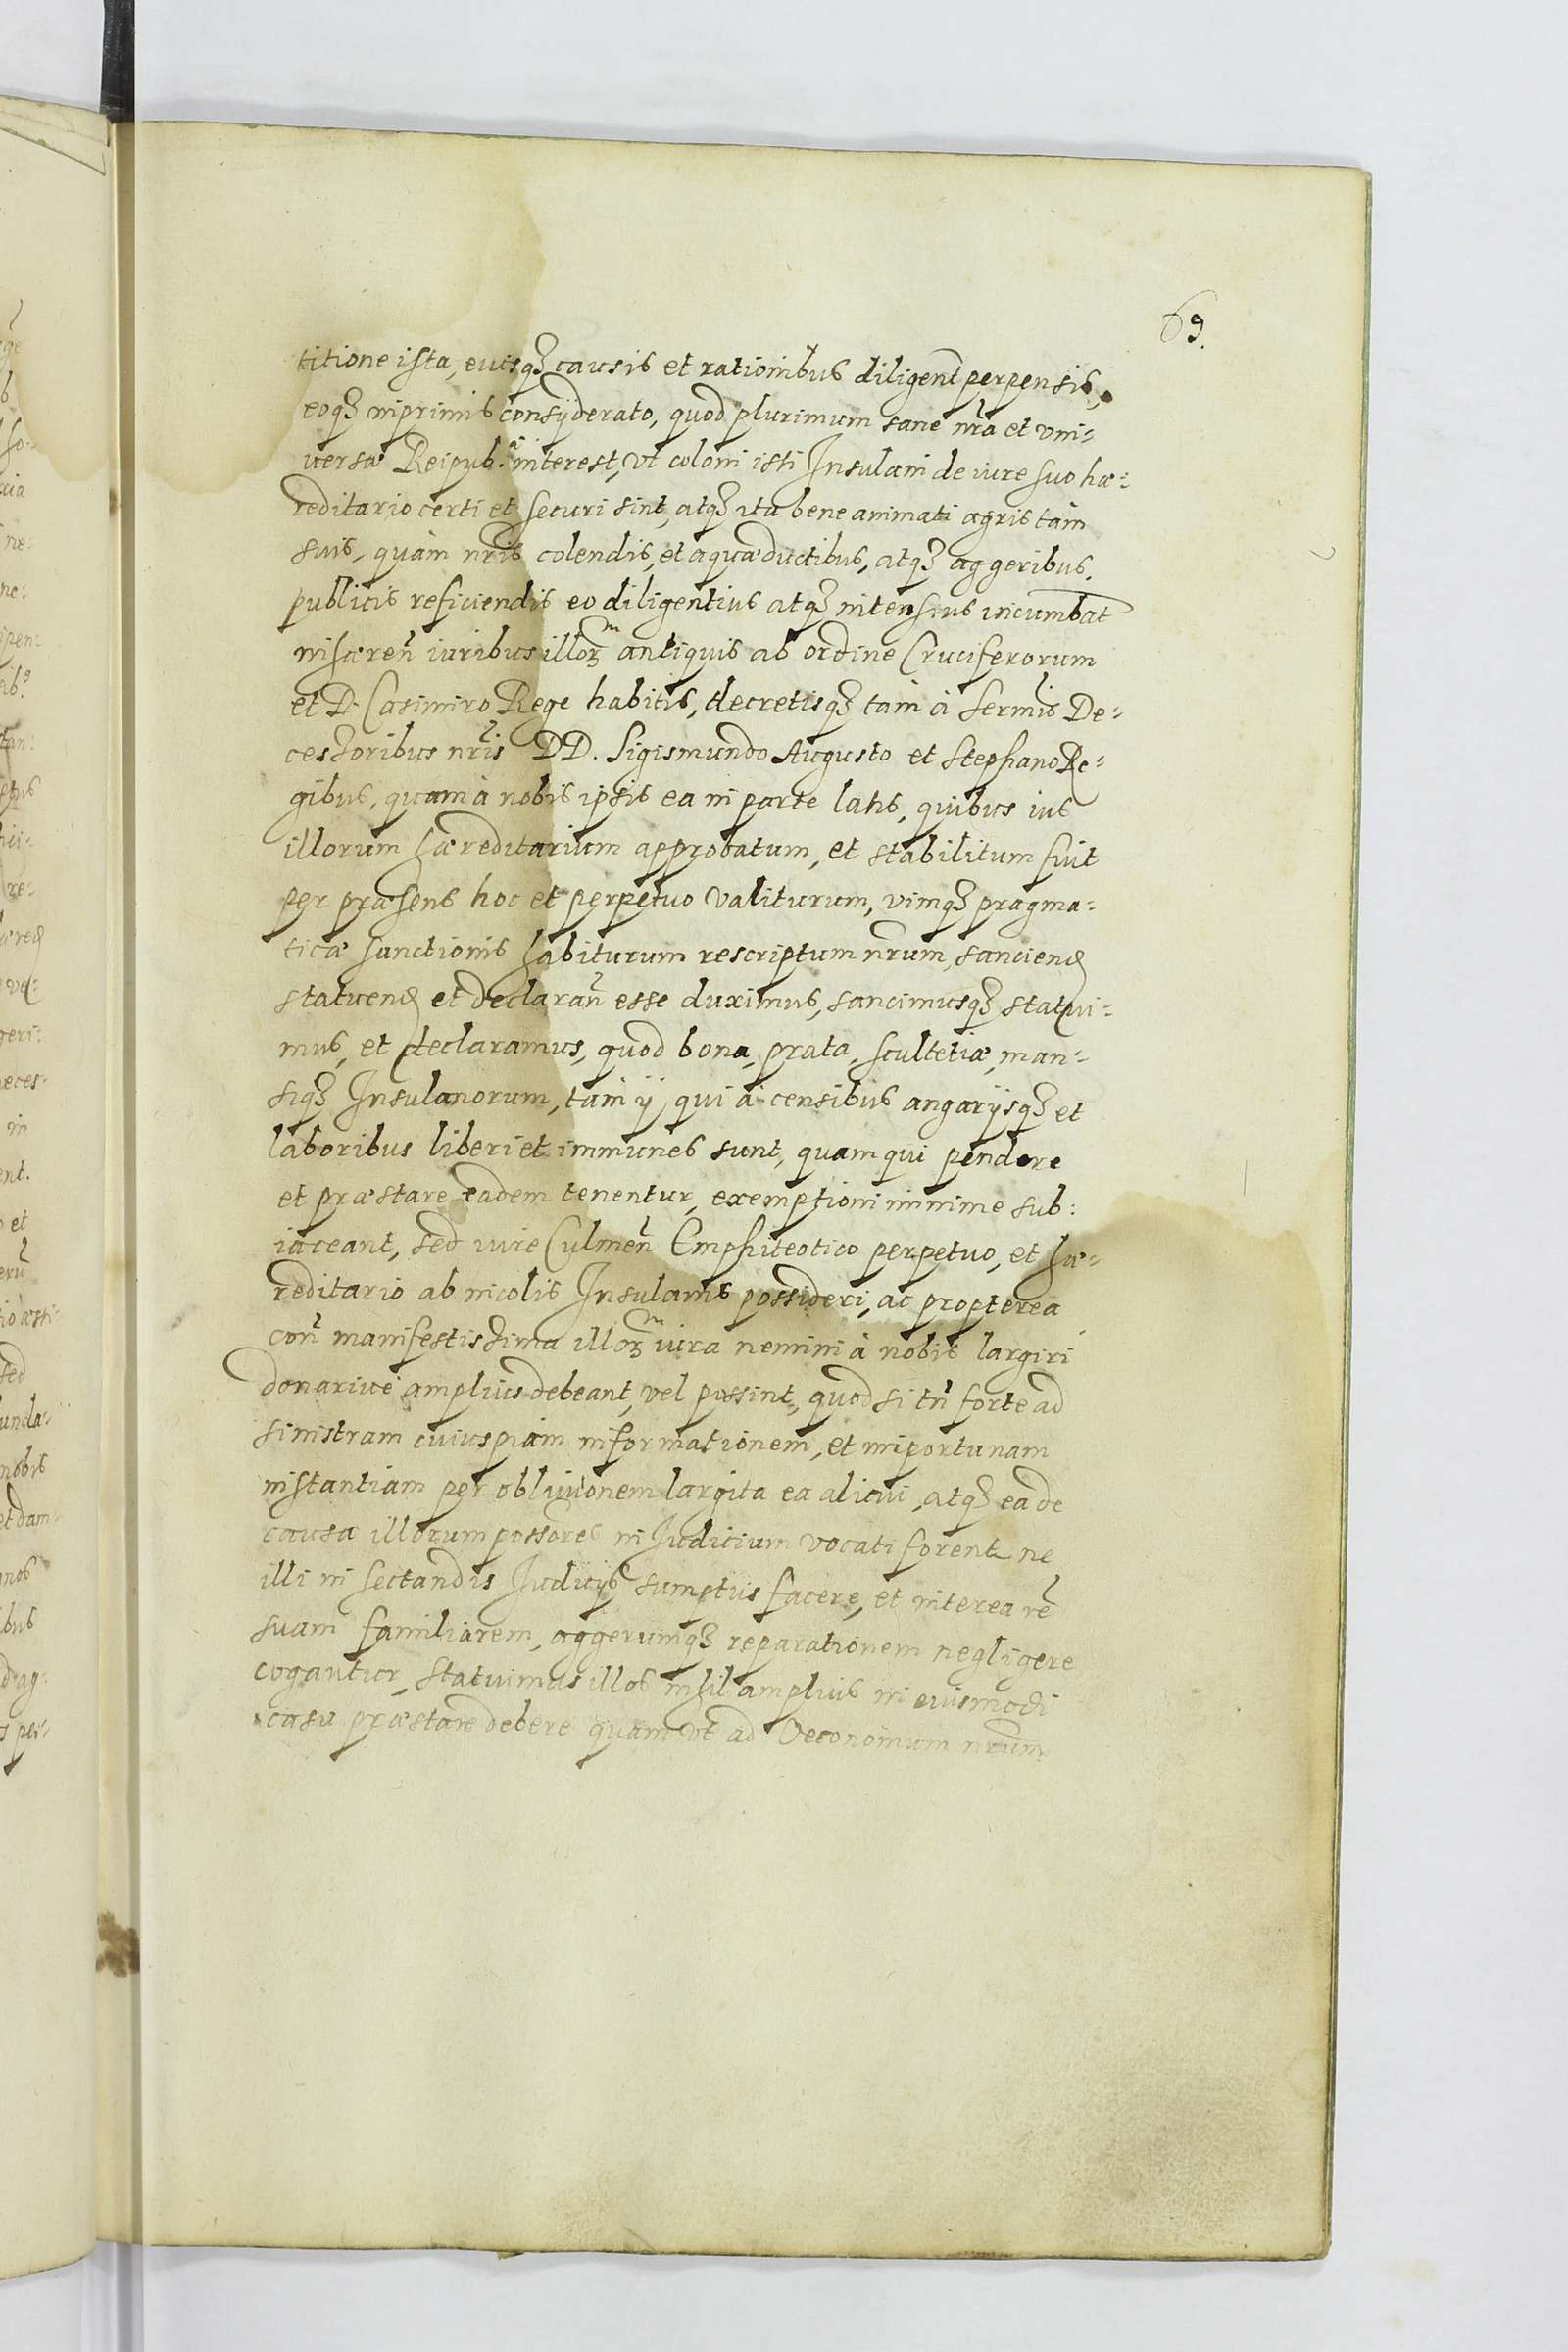 69.
titione ista, eiusq3 causis et rationibus diligent perpensis,
eoq3 inprimis consyderato, quod plurimum sane nrã et vni-
uersæ Reipub. interest, vt coloni isti Insulani de iure suo hæ-
reditario certi et securi sint, atq3 ita bene animati agris tàm
suis, quàm nris colendis, et aquæductibus, atq3 aggeribus,
publicis reficiendis eo diligentius atq3 intensius incumbãt
inhæreñ iuribus illor3 antiquis ab ordine Cruciferorum
et D. Casimiro Rege habitis, decretisq3 tàm à Sermis De-
cessoribus nris DD. Sigismundo Augusto et Stephano Re-
gibus, quam à nobis ipsis ea in parte latis, quibus ius
illorum hæreditarium approbatum, et stabilitum fuit
per præsens hoc et perpetuo valiturum, vimq3 pragma-
ticæ sanctionis habiturum rescriptum nrum, sanciend
statuend et declarañ esse duximus, sancimusq3 statui-
mus, et declaramus, quod bona, prata, scultetiæ, man-
siq3 Insulanorum, tàm ij qui à censibus angarijsq3 et
laboribus liberi et immunes sunt, quam qui pendere
et præstare eadem tenentur, exemptioni minime sub:
iaceant, sed iure Culmeñ Emphiteotico perpetuo, et hæ-
reditario ab incolis Insulanis possideri, ac propterea
coñ manifestissima illor3 iura nemini à nobis largiri
donariue amplius debeant, vel possint, quod si tñ forte ad
sinistram cuiuspiam informationem, et importunam
instantiam per obliuionem largita ea alicui, atq3 ea de
causa illorum possores in Iudicium vocati forent, ne
illi in sectandis Iudicijs sumptus facere, et interea rẽ
suam familiarem, aggerumq3 reparationem negligere
cogantur, statuimus illos nihil amplius in eiusmodi
casu præstare debere quam vt ad Oeconomum nrum